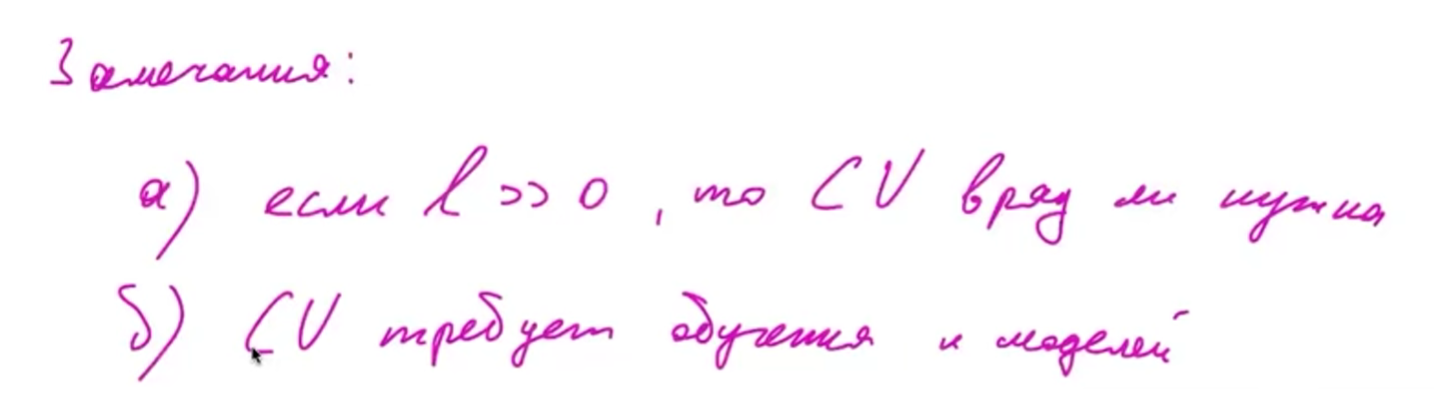 Замечания:
а) если l >> 0, то CV вряд ли нужна
б) CV требует обучения k моделей